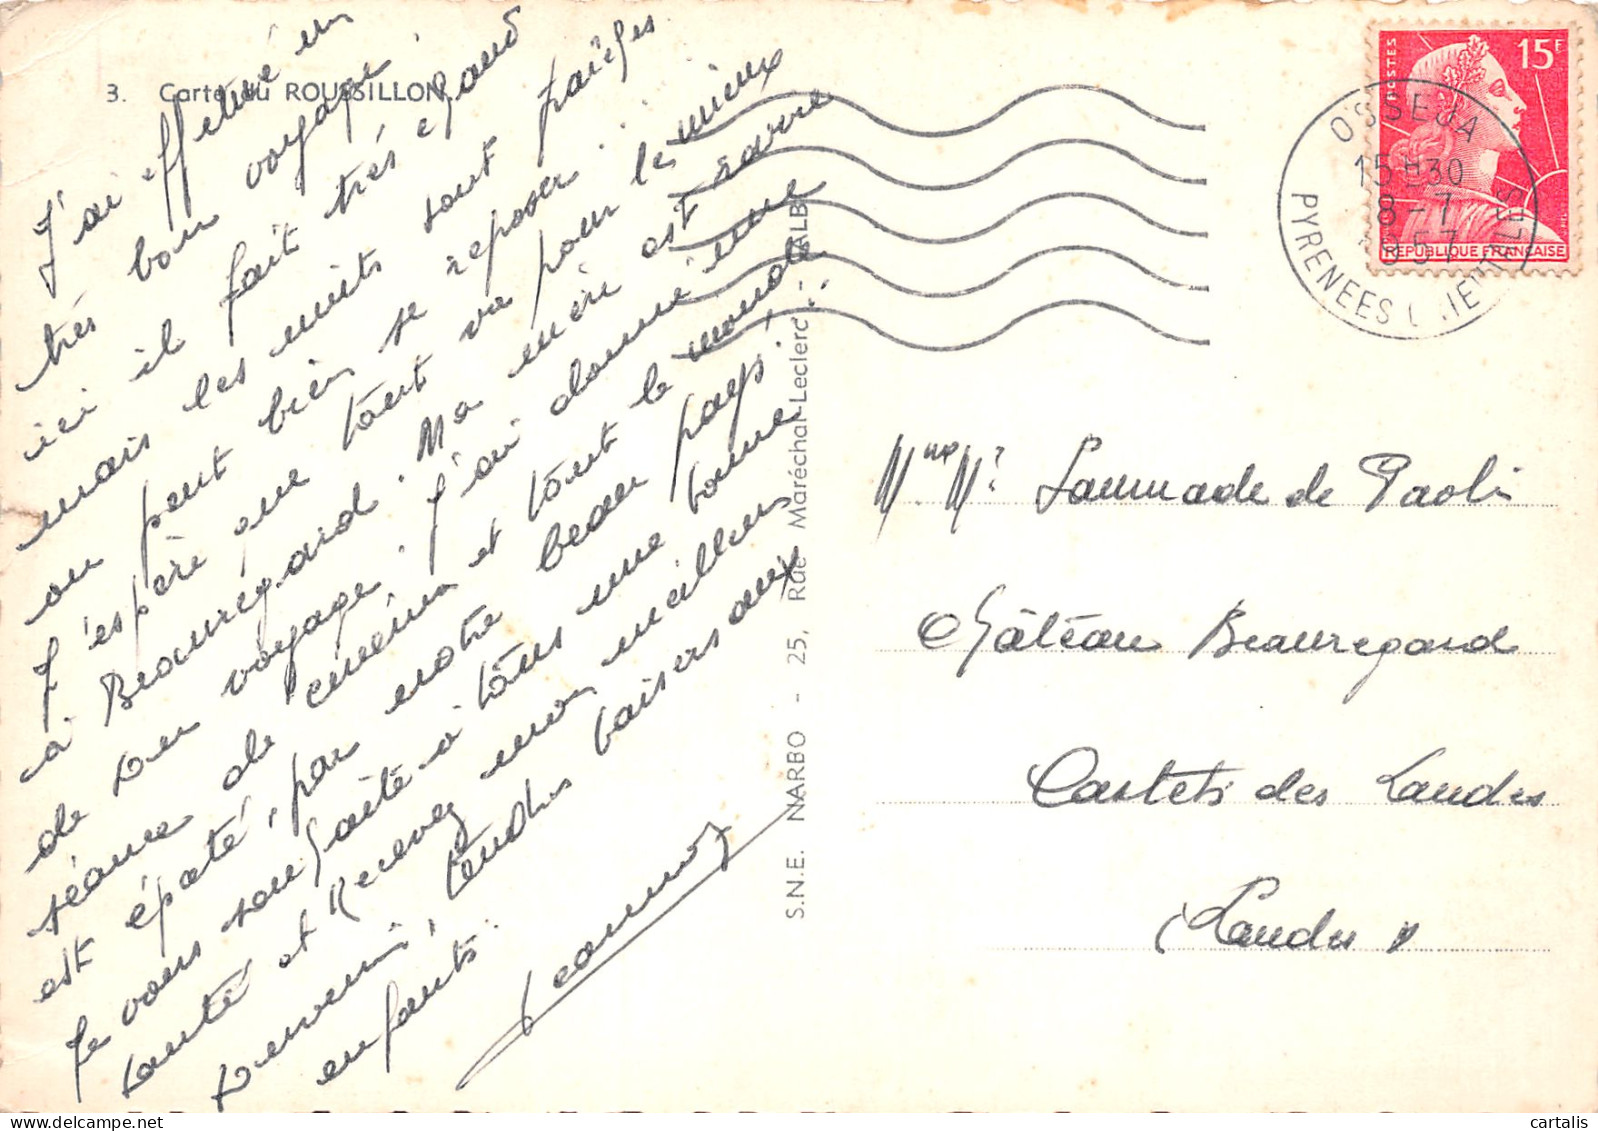 3. Carte du ROUSSILLON
J'ai effectué un
très bon voyage
ici il fait très chaud
mais les nuits sont fraîches
on peut bien se reposer.
J'espère que tout va pour le mieux
à Beauregard. Ma mère est ravie
de son voyage. J'ai donné une
séance de cinéma et tout le monde
est épaté, par notre beau pays!
Je vous souhaite à tous une bonne
santé et Recevez mon meilleur
souvenir, tendres baisers aux
enfants.
S.N.E. NARBO - 25, Rue Maréchal-Leclerc - ALBI
POSTES
15F
REPUBLIQUE FRANÇAISE
OSSEJA
15H30
8-7
1957
PYRENEES ORIENTALES
Mme Mr Lammade de Paoli
Château Beauregard
Castets des Landes
Landes
cartalis | delcampe.net